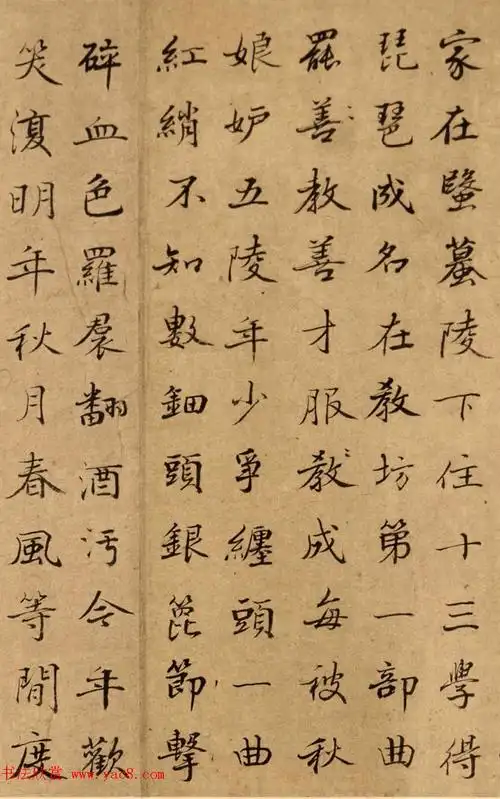 家在蝦蟇陵下住十三學得
琵琶成名在教坊第一部曲
罷善教善才服教成每被秋
娘妒五陵年少爭纏頭一曲
紅綃不知數鈿頭銀篦節擊
碎血色羅裠翻酒汚今年歡
笑復明年秋月春風等閒度
书法欣赏 www.yac8.com